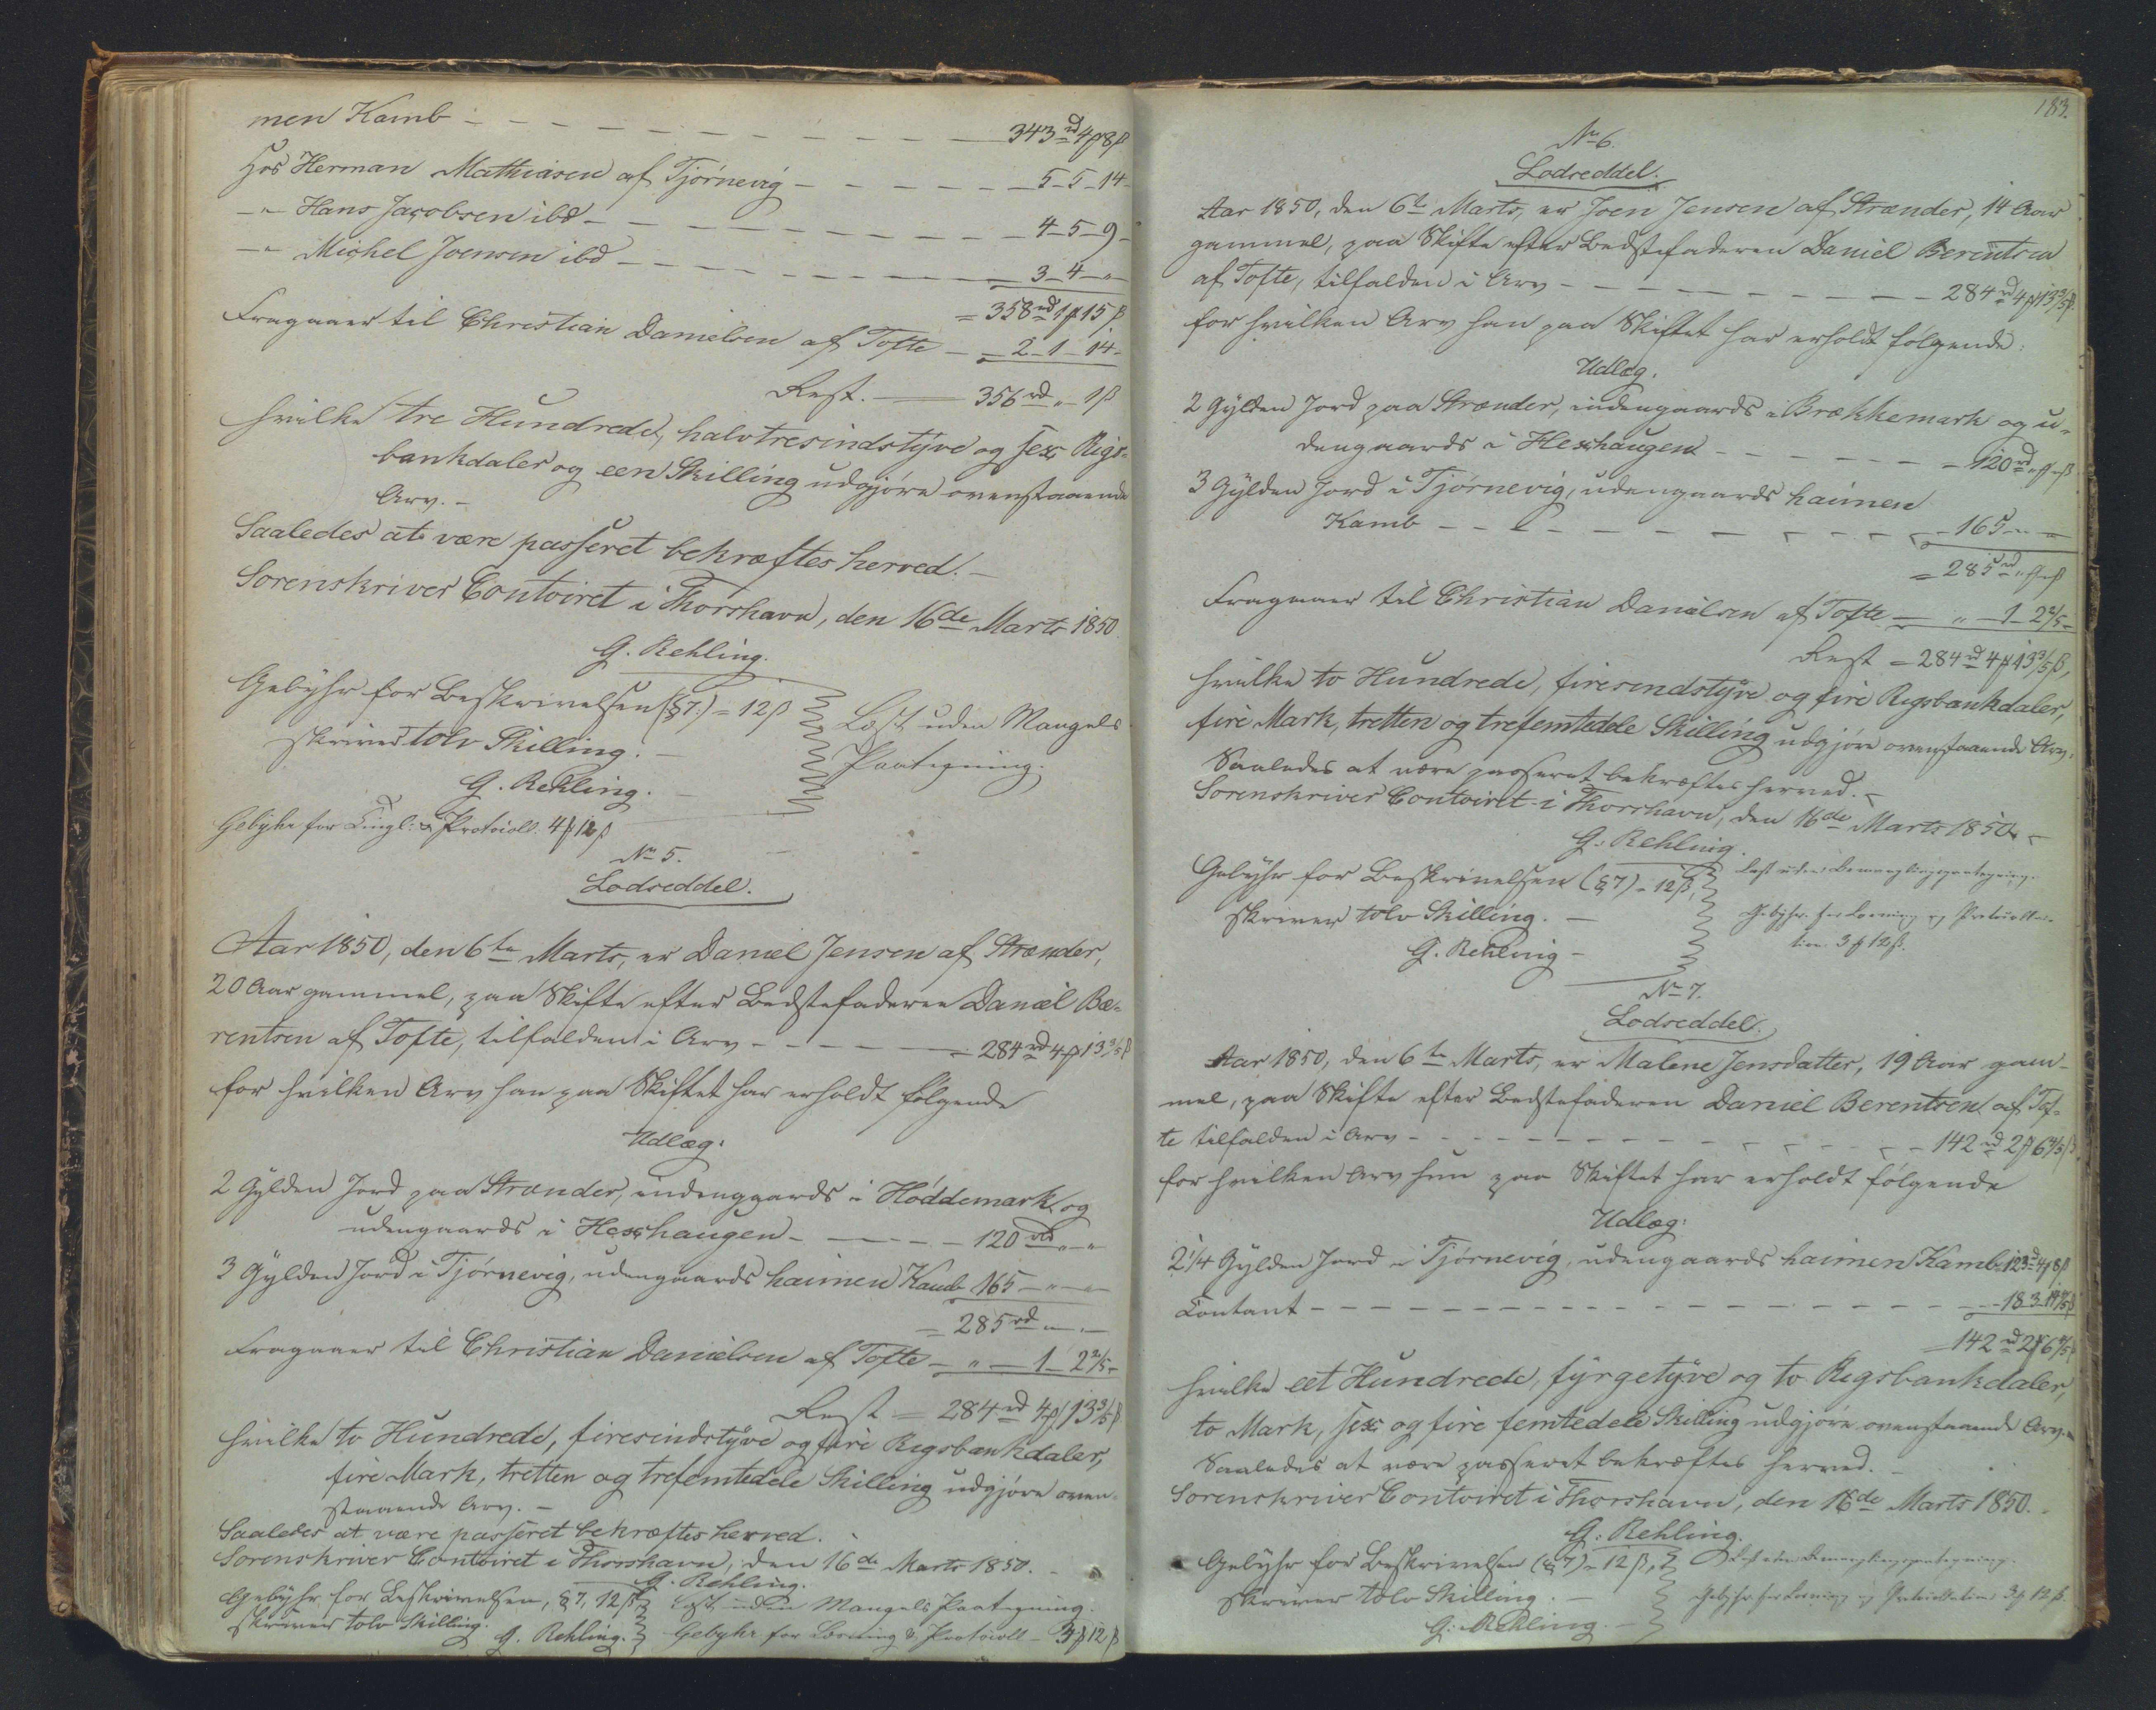 men Kamb - - - - - - - - - - - 343 rd 4 ℳ 8 β
hos Herman Mathiasen af Tjørnevig - - - - - - 5 - 5 - 14 -
-"- Hans Jacobsen ibd - - - - - - - - 4 - 5 - 9 -
-"- Michel Joensen ibd - - - - - - - - 3 - 4 - " -
= 358 rd 1 ℳ 15 β
Fragaaer til Christian Danielsen af Tofte - = 2 - 1 - 14 -
Rest. — 356 rd " - 1 β
hvilke tre Hundrede, halvtresindstyve og sex Rigs-
bankdaler og een Skilling udgjøre ovenstaaende
Arv. -
Saaledes at være passeret bekræftes herved. -
Sorenskriver Contoiret i Thorshavn, den 16de Marts 1850.
G. Rehling.
Gebyhr for Beskrivelsen (§ 7.) = 12 β
skriver tolv Skilling. -
G. Rehling. -
Læst uden Mangels
Paategning.
Gebyhr for Tingl: & Protocoll. 4 ℳ 12 β
No 5.
Lodseddel.
Aar 1850, den 6te Marts, er Daniel Jensen af Strænder,
20 Aar gammel, paa Skifte efter Bedstefaderen Daniel Be-
rentsen af Tofte, tilfalden i Arv - - - - - = 284 rd 4 ℳ 13 3/5 β
for hvilken Arv han paa Skiftet har erholdt følgende
Udlæg:
2 Gylden Jord paa Strænder, indengaards i Høddemark og
udengaards i Hexhaugen - - - - - 120 rd " - "
3 Gylden Jord i Tjørnevig, udengaards haimen Kamb 165 - " - " -
= 285 rd " - " -
Fragaaer til Christian Danielsen af Tofte - " - 1 - 2 2/5 -
Rest = 284 rd 4 ℳ 13 3/5 β
hvilke to Hundrede, firesindstyve og fire Rigsbankdaler,
fire Mark, tretten og trefemtedele Skilling udgjøre oven-
staaende Arv. -
Saaledes at være passeret bekræftes herved.
Sorenskriver Contoiret i Thorshavn, den 16de Marts 1850. -
G. Rehling.
Gebyhr for Beskrivelsen, § 7, 12 β
skriver tolv Skilling.
G. Rehling.
Læst uden Mangels Paategning.
Gebyhr for Læsning & Protocoll - 3 ℳ 12 β
183.
No 6.
Lodseddel.
Aar 1850, den 6te Marts, er Joen Jensen af Strænder, 14 Aar
gammel, paa Skifte efter Bedstefaderen Daniel Berentsen
af Tofte, tilfalden i Arv - - - - - - - - 284 rd 4 ℳ 13 3/5 β
for hvilken Arv han paa Skiftet har erholdt følgende:
Udlæg.
2 Gylden Jord paa Strænder, indengaards i Brækkemark og u-
dengaards i Hexhaugen - - - - - - - 120 rd " ℳ - β
3 Gylden Jord i Tjørnevig, udengaards haimen
Kamb - - - - - - - - - - - 165 - " - " -
= 285 rd " ℳ - β
Fragaaer til Christian Danielsen af Tofte - " - 1 - 2 2/5 -
Rest = 284 rd 4 ℳ 13 3/5 β,
hvilke to Hundrede, firesindstyve og fire Rigsbankdaler,
fire Mark, tretten og trefemtedele Skilling udgjøre ovenstaaende Arv.
Saaledes at være passeret bekræftes herved. -
Sorenskriver Contoiret i Thorshavn, den 16de Marts 1850. -
G. Rehling.
Gebyhr for Beskrivelsen (§ 7) = 12 β,
skriver tolv Skilling. -
G. Rehling -
Læst uden Bemærkningspaategning.
Gebyhr for Læsning og Protocolla-
tion 3 ℳ 12 β.
No 7.
Lodseddel.
Aar 1850, den 6te Marts, er Malene Jensdatter, 19 Aar gam-
mel, paa Skifte efter Bedstefaderen Daniel Berentsen af Tof-
te tilfalden i Arv - - - - - - - - - 142 rd 2 ℳ 6 4/5 β.
for hvilken Arv hun paa Skiftet har erholdt følgende
Udlæg:
2 1/4 Gylden Jord i Tjørnevig, udengaards haimen Kamb 123 rd 4 ℳ 8 β
Contant - - - - - - - - - - - - 18 - 3 - 14 4/5 β
= 142 rd 2 ℳ 6 4/5 β
hvilke eet Hundrede, fyrgetyve og to Rigsbankdaler,
to Mark, sex og fire femtedele Skilling udgjøre ovenstaaende Arv. -
Saaledes at være passeret bekræftes herved. -
Sorenskriver Contoiret i Thorshavn, den 16de Marts 1850. -
G. Rehling.
Gebyhr for Beskrivelsen (§ 7) = 12 β,
skriver tolv Skilling. -
G. Rehling. -
Læst uden Bemærkningspaategning.
Gebyhr for Læsning og Protocollation 3 ℳ 12 β.